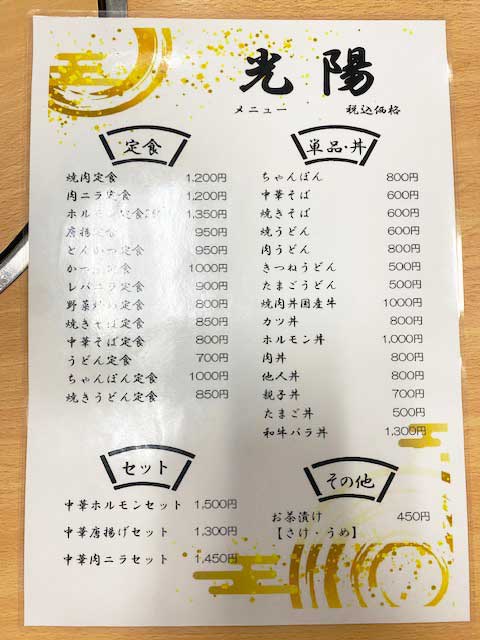 光陽
メニュー 税込価格
定食
焼肉定食 1,200円
肉ニラ定食 1,200円
ホルモン定食 1,350円
唐揚定食 950円
とんかつ定食 950円
かつ 定食 1000円
レバニラ定食 900円
野菜炒め定食 800円
焼きそば定食 850円
中華そば定食 800円
うどん定食 700円
ちゃんぽん定食 1000円
焼きうどん定食 850円
セット
中華ホルモンセット 1,500円
中華唐揚げセット 1,300円
中華肉ニラセット 1,450円
単品・丼
ちゃんぽん 800円
中華そば 600円
焼きそば 600円
焼うどん 600円
肉うどん 800円
きつねうどん 500円
たまごうどん 500円
焼肉丼国産牛 1000円
カツ丼 800円
ホルモン丼 1,000円
肉丼 800円
他人丼 800円
親子丼 700円
たまご丼 500円
和牛バラ丼 1,300円
その他
お茶漬け 450円
【さけ・うめ】